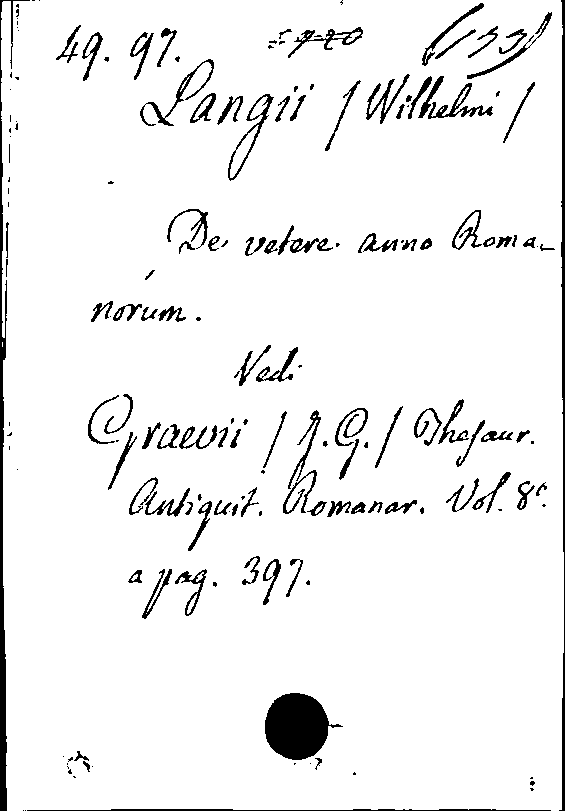 49. 97. (133)
Langii / Wilhelmi /
De vetere anno Roma-
norum.
Vedi
Graevii / J. G. / Thesaur.
Antiquit. Romanar. Vol. 8º.
a pag. 397.